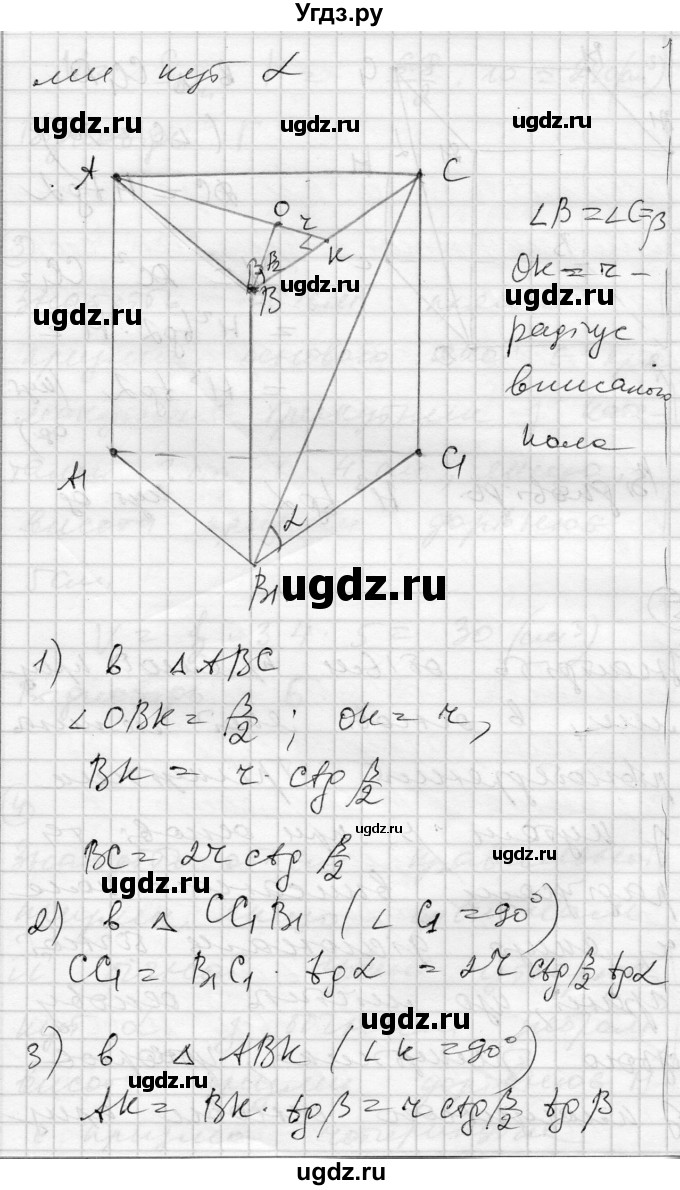 Угдз.ру
ми кут α
ugdz.ru ugdz.ru ugdz.ru
A C
O r K
β/2
B
∠B = ∠C = β
OK = r –
радіус
вписаного
кола
ugdz.ru ugdz.ru ugdz.ru
A₁ C₁
α
B₁
ugdz.ru
1) в △ABC
∠OBK = β/2 ; OK = r,
BK = r · ctg β/2
ugdz.ru
BC = 2r ctg β/2
ugdz.ru ugdz.ru
2) в △ CC₁B₁ (∠C₁ = 90°)
CC₁ = B₁C₁ · tgα = 2r ctg β/2 tgα
ugdz.ru
3) в △ ABK (∠K = 90°)
ugdz.ru
AK = BK · tgβ = r ctg β/2 tgβ
ugdz.ru